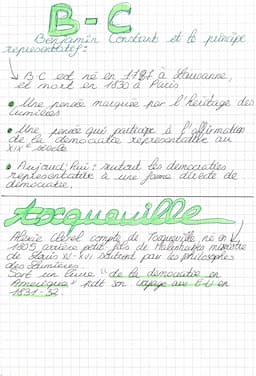 B-C
Benjamin Constant et le principe
représentatif :
↳ B-C est né en 1787 à Lausanne,
et mort en 1830 à Paris
• Une pensée marquée par l'héritage des
Lumières
• Une pensée qui participe à l'affirmation
de la démocratie représentative au
XIXe siècle
• Aujourd'hui : surtout les démocraties
représentative à une forme directe de
démocratie.
Tocqueville
Alexis Clérel compte de Tocqueville né en
1805 arrière petit fils de Malesherbes ministre
de Louis XV-XVI soutient par les philosophes
des Lumières
écrit un livre "de la démocratie en
Amérique" pdt son voyage aux E-U en
1831-32.